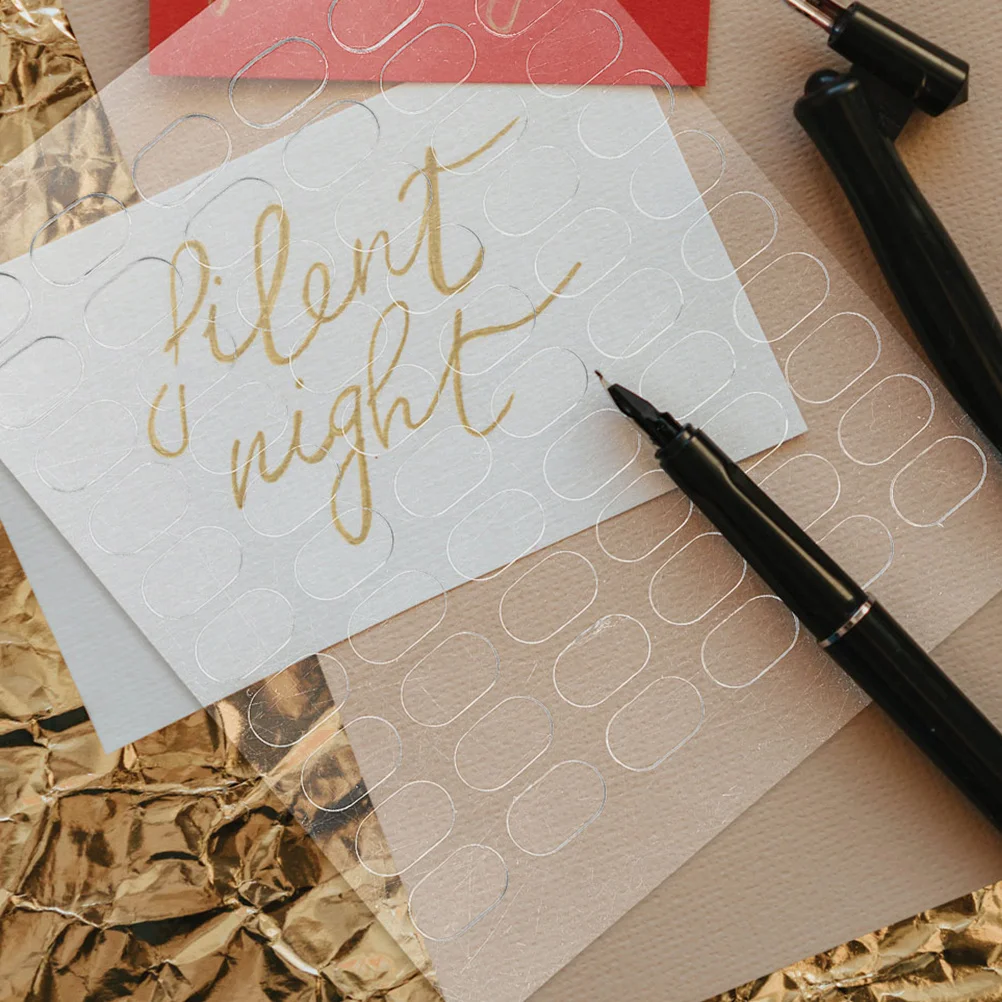 Silent
night